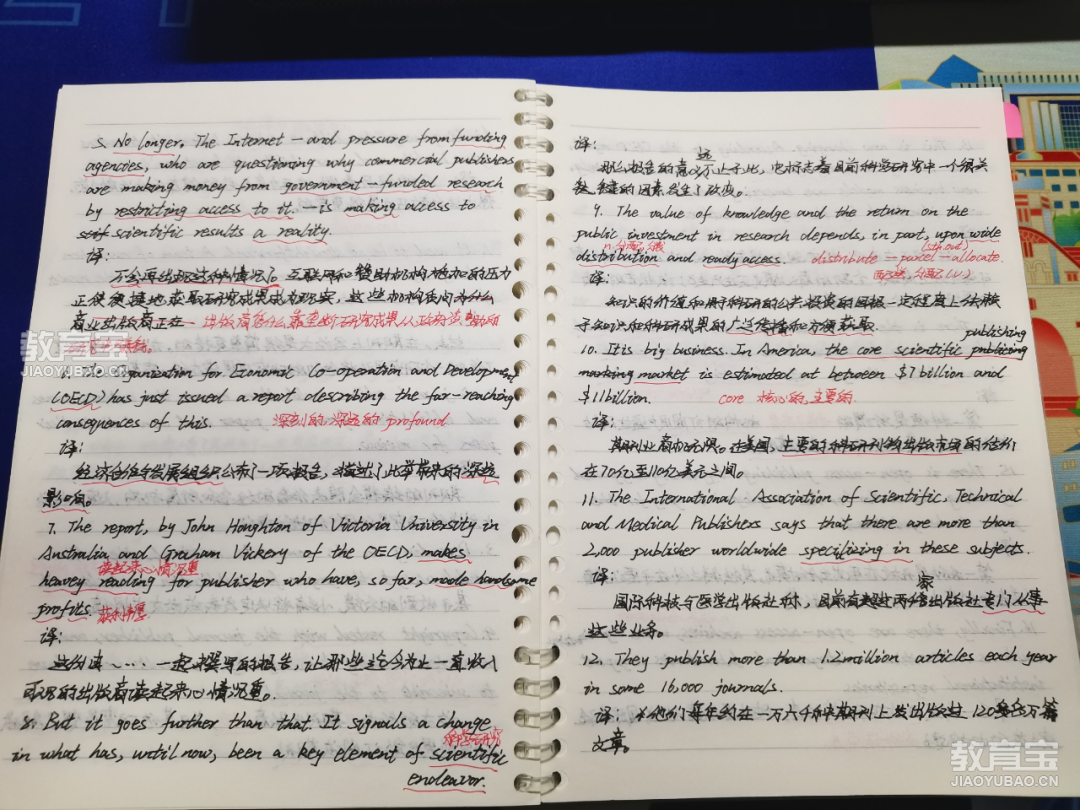 5. No longer. The Internet — and pressure from funding
agencies, who are questioning why commercial publishers
are making money from government-funded research
by restricting access to it. — is making access to
scientific results a reality.
译:
不会再出现这种情况了。互联网和赞助机构施加的压力
正使便捷地获取研究成果成为现实,这些机构质问为什么
商业出版商正在
6. The Organization for Economic Co-operation and Development
(OECD) has just issued a report describing the far-reaching
consequences of this. 深刻的,深远的 profound
译:
经济合作与发展组织公布了一项报告,描述了此举带来的深远
影响。
7. The report, by John Houghton of Victoria University in
Australia and Graham Vickery of the OECD, makes
读起来心情沉重
heavey reading for publisher who have, so far, made handsome
profits. 获利丰厚
译:
这份由……一起撰写的报告,让那些迄今为止一直收入
可观的出版商读起来心情沉重。
8. But it goes further than that. It signals a change
科学研究
in what has, until now, been a key element of scientific
endeavor.
译:
远
那么报告的意义不止于此,它标志着目前科学研究中一个很关
键的因素发生了改变。
9. The value of knowledge and the return on the
public investment in research depends, in part, upon wide
n. 分配,分发 (sth. out)
distribution and ready access. distribute — parcel — allocate.
配送,分配 (v.)
译:
知识的价值和用于科研的公共投资的回报一定程度上依赖
于知识和科研成果的广泛传播和方便获取.
publishing
10. It is big business. In America, the core scientific publicing
marking market is estimated at between $7 billion and
$11 billion. core 核心的,主要的.
译:
期刊业商机无限。在美国,主要的科研刊物出版市场的估价
在70亿至110亿美元之间。
11. The International Association of Scientific, Technical
and Medical Publishers says that there are more than
2,000 publisher worldwide specilizing in these subjects.
译: 家
国际科技与医学出版社称,目前有超过两千出版社专门从事
这些业务。
12. They publish more than 1.2 million articles each year
in some 16,000 journals.
译: 他们每年约在一万六千种期刊上发出版过120多万篇
文章。
教育宝
JIAOYUBAO.CN
教育宝
JIAOYUBAO.CN